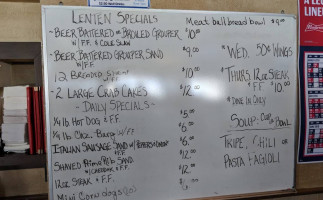 LENTEN SPECIALS
Meat ball bread bowl $9.00
~ BEER BATTERED OR BROILED GROUPER $10.00
W/ F.F. & COLE SLAW
BEER BATTERED GROUPER SAND $9.00
W/ F.F.
12 BREADED $10.00
W/ F.F.
2 LARGE CRAB CAKES $12.00
~ DAILY SPECIALS ~
1/4 lb HOT DOG & F.F. $5.00
1/4 lb Chz. Burg W/ F.F. $6.00
ITALIAN SAUSAGE SAND W/ PEPPERS & ONIONS
F.F.
SHAVED Prime Rib SAND $12.00
12oz. STEAK & F.F. $12.00
Mini Corn dogs (10)
* WED. 50¢ WINGS
* THURS. 12oz STEAK
& F.F. $10.00
* DINE IN ONLY
SOUP: CUP OR BOWL
TRIPE, CHILI OR
PASTA FAGIOLI